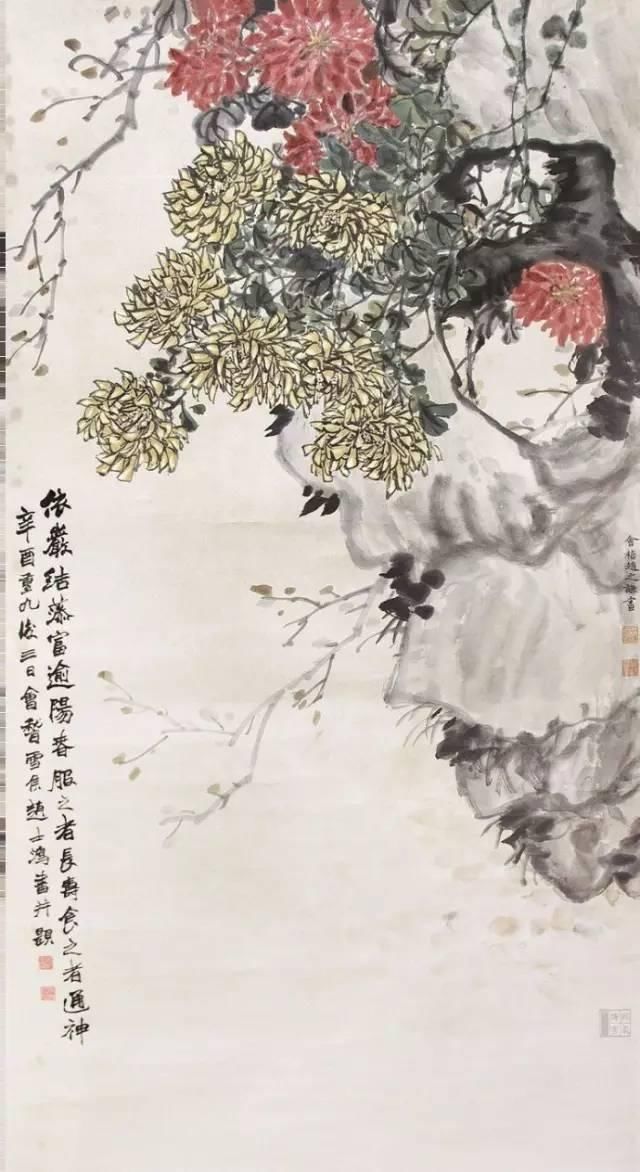 會稽趙之謙畫
依巖結蕊富逾陽春服之者長壽食之者通神
辛酉重九後三日會稽雪侯趙士鴻畫并題